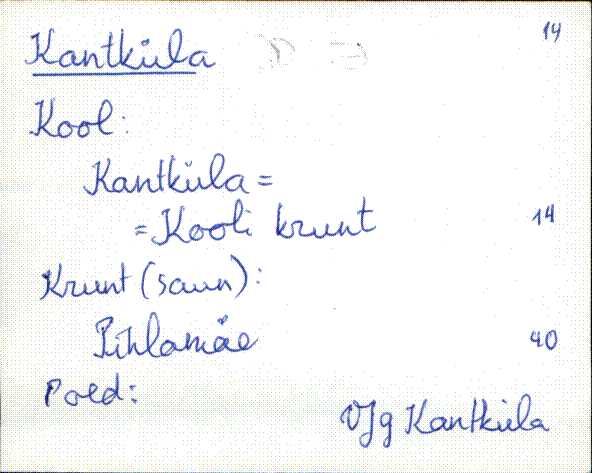 Kantküla 14
Kool:
Kantküla =
= Kooli krunt 14
Krunt (saun):
Pihlamäe 40
Poed:
VJg Kantküla